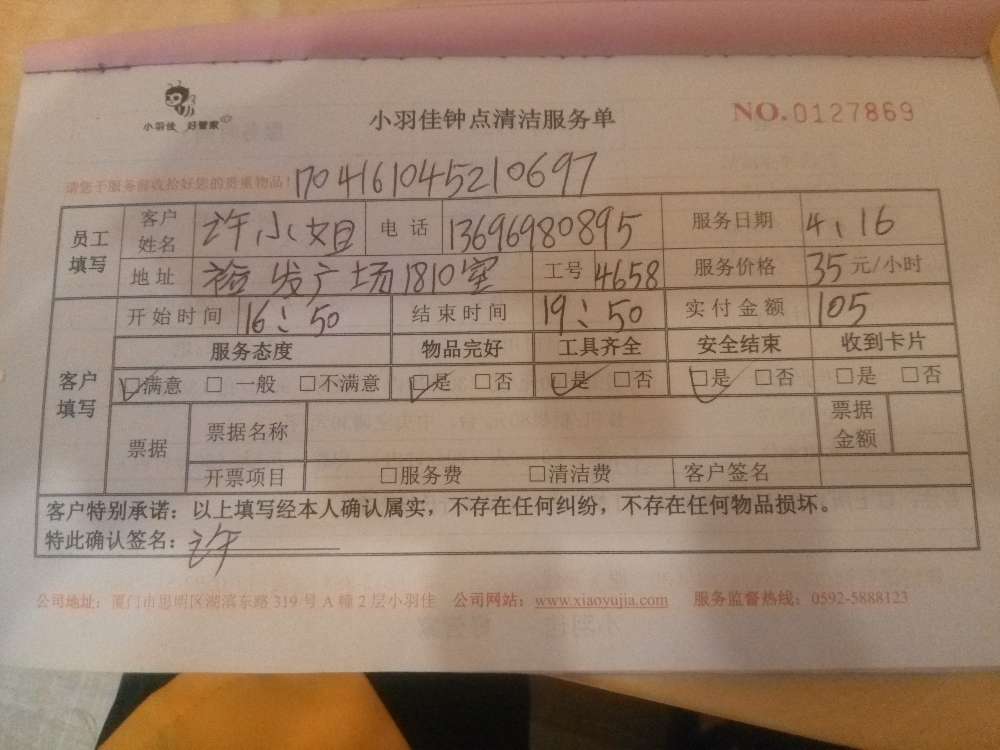 小羽佳 好管家
小羽佳钟点清洁服务单
NO.0127869
请您于服务前收拾好您的贵重物品!
1704161045210697
员工填写 客户姓名 许小姐 电话 13696980895 服务日期 4、16
地址 裕发广场1810室 工号 4658 服务价格 35元/小时
客户填写 开始时间 16:50 结束时间 19:50 实付金额 105
服务态度 物品完好 工具齐全 安全结束 收到卡片
☑满意 □一般 □不满意 ☑是 □否 ☑是 □否 ☑是 □否 □是 □否
票据 票据名称 票据金额
开票项目 □服务费 □清洁费 客户签名
客户特别承诺：以上填写经本人确认属实，不存在任何纠纷，不存在任何物品损坏。
特此确认签名：许
公司地址：厦门市思明区湖滨东路319号A幢2层小羽佳 公司网站：www.xiaoyujia.com 服务监督热线：0592-5888123